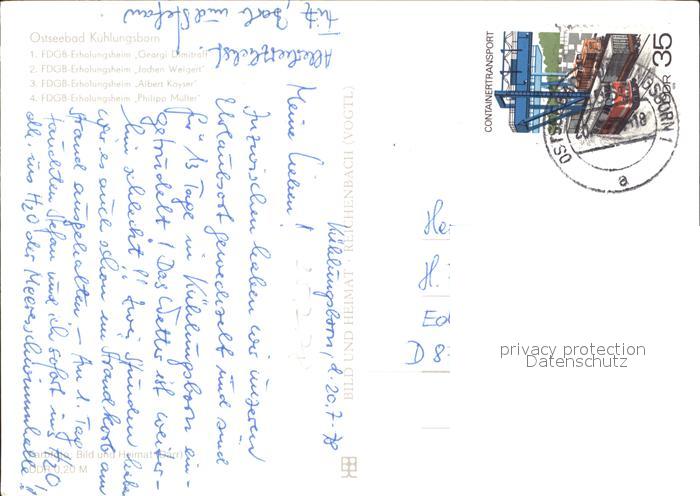 Ostseebad Kühlungsborn
1. FDGB-Erholungsheim „Georgi Dimitroff“
2. FDGB-Erholungsheim „Jochen Weigert“
3. FDGB-Erholungsheim „Albert Kayser“
4. FDGB-Erholungsheim „Philipp Müller“
Kühlungsborn, d. 20.7.78
Meine Lieben!
Inzwischen haben wir unseren
Urlaubsort gewechselt und sind
für 13 Tage in Kühlungsborn ein-
getrudelt! Das Wetter ist weiter-
hin schlecht!! Zwei Stunden
wir es auch schon im Strandkorb am
Strand ausgehalten – Am 1. Tag
tauchten Stefan und ich sofort ins H2O
d.h. ins H2O der Meeresschwimmhalle!
Allerherzlichst
und Stefan
BILD UND HEIMAT REICHENBACH (VOGTL)
Bild und Heimat
DDR 0,20 M
CONTAINERTRANSPORT
DDR 35
18
a
He
H.
Ed
D 8
privacy protection
Datenschutz